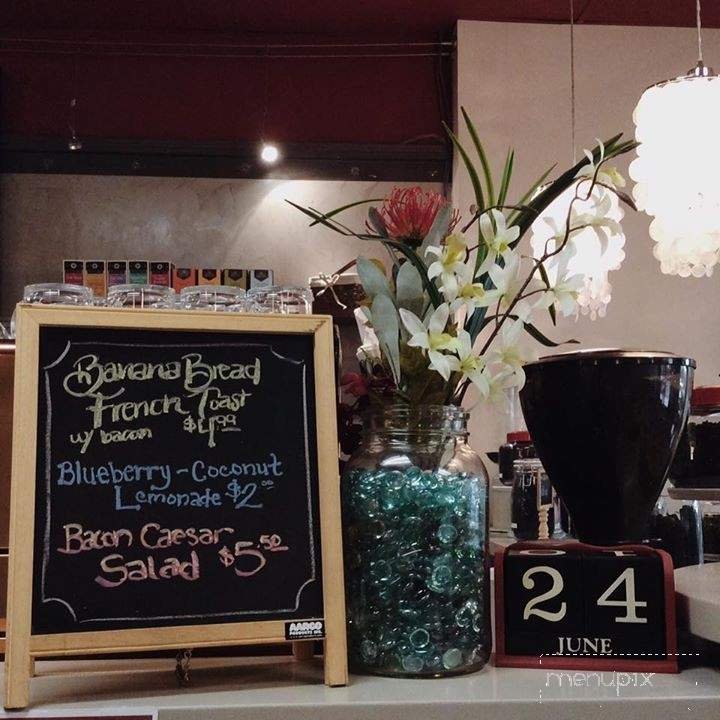 Banana Bread
French Toast
w/ bacon $4.99
Blueberry-Coconut
Lemonade $2.00
Bacon Caesar
Salad $5.50
AARCO
PRODUCTS INC.
24
JUNE
menupix